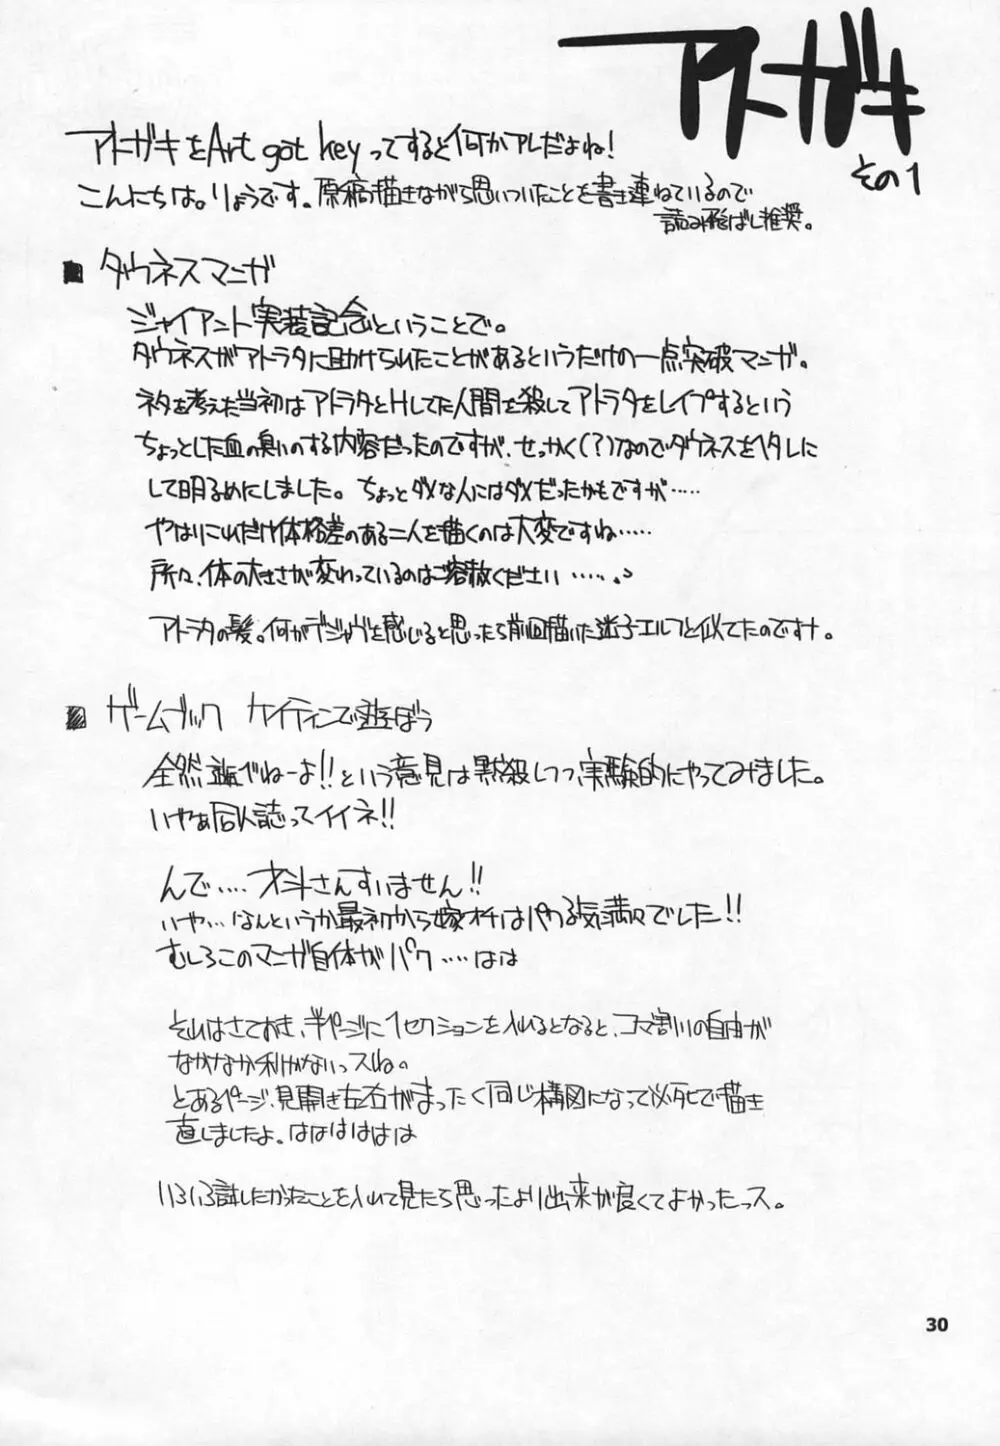 アトガキ
その1
アトガキをArt got keyってすると何かアレだよね!
こんにちは。りょうです。原稿描きながら思いついたことを書き連ねているので
読み飛ばし推奨。
■ タウネスマンガ
ジャイアント実装記念ということで。
タウネスがアトラタに助けられたことがあるというだけの一点突破マンガ。
ネタを考えた当初はアトラタとHしてた人間を殺してアトラタをレイプするという
ちょっとした血の臭いのする内容だったのですが、せっかく(?)なのでタウネスをヘタレに
して明るめにしました。ちょっとダメな人にはダメだったかもですが……
やはりこれだけ体格差のある二人を描くのは大変ですね……
所々、体の大きさが変わっているのはご容赦ください……。
アトラタの髪。何かデジャヴを感じると思ったら前回描いた迷子エルフと似てたのですナ。
■ ゲームブック ケイティンで遊ぼう
全然遊んでねーよ!!という意見は黙殺しつつ、実験的にやってみました。
いやぁ同人誌ってイイネ!!
んで…、才斗さんすいません!!
いや…なんというか最初から嫁オチはパクる気満々でした!!
むしろこのマンガ自体がパク……はは
それはさておき、半ページに1セクションを入れるとなると、コマ割りの自由が
なかなか利かないっスね。
とあるページ、見開き左右がまったく同じ構図になって必死で描き
直しましたよ。はははははは
いろいろ試したかったことを入れて見たら思ったより出来が良くてよかったっス。
30